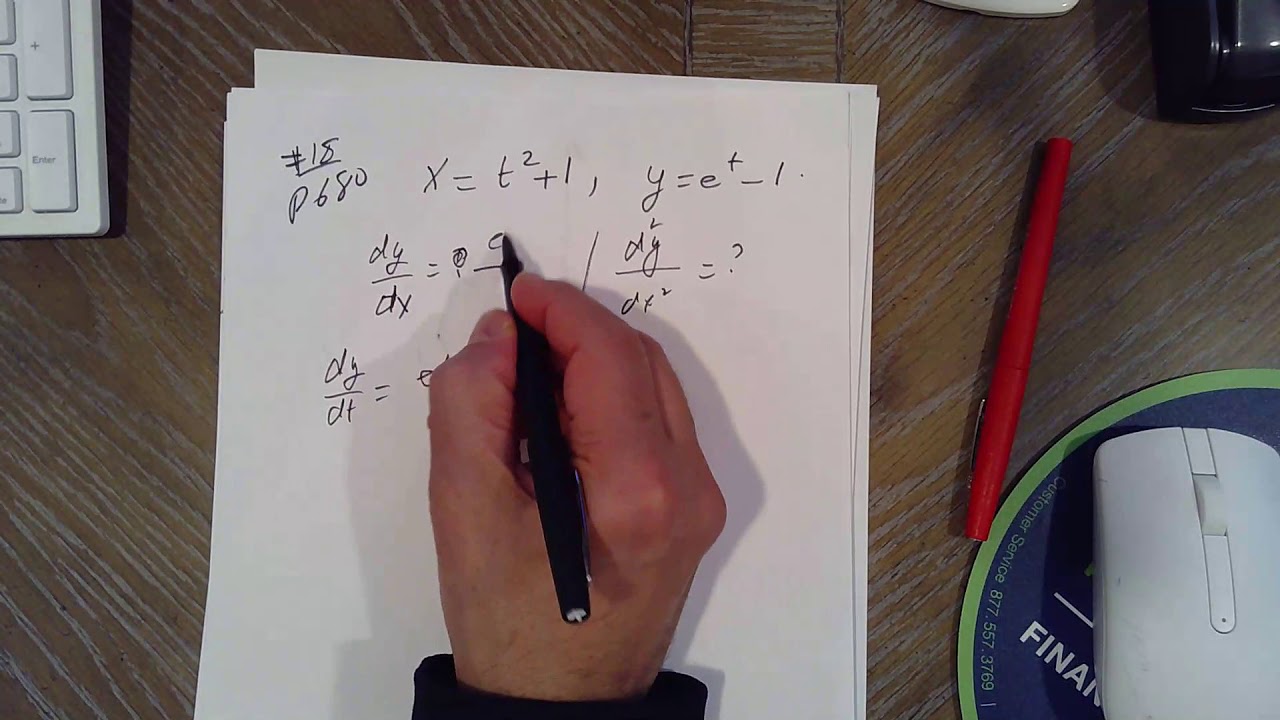 #18
P680
x = t²+1, y = e^t - 1.
dy/dx = ? / d²y/dx² = ?
dy/dt = e
+
Enter
Customer Service 877.557.3769 |
FINAN